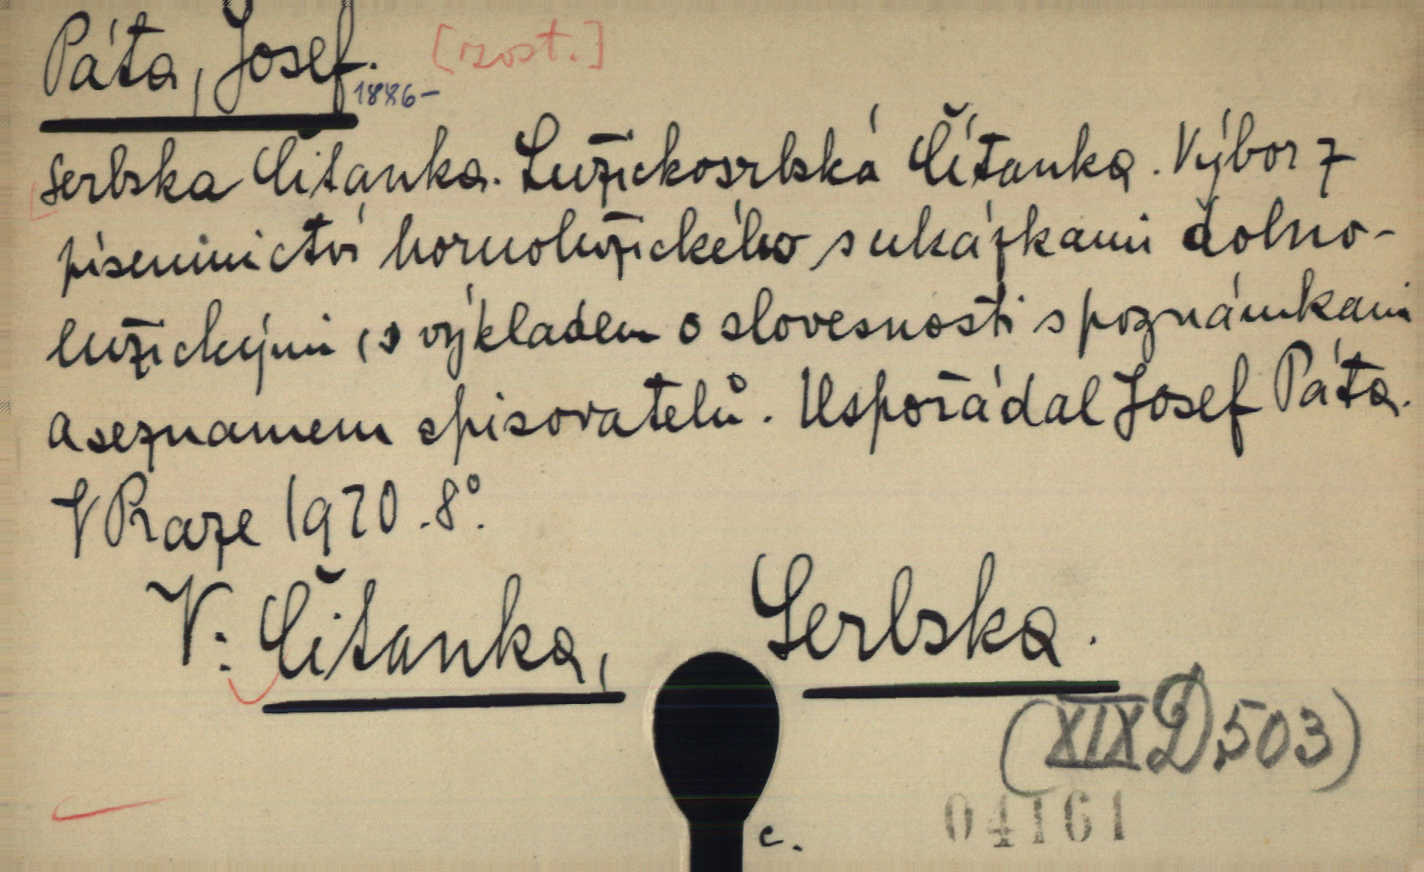 Páta, Josef. [rost.]
1886-
Serbska čitanka. Lužickosrbská čítanka. Výbor z
písemnictví hornolužického s ukázkami dolno-
lužickými, s výkladem o slovesnosti s poznámkami
a seznamem spisovatelů. Uspořádal Josef Páta.
V Praze 1920. 8°.
V: Čitanka, Serbska.
(XIX D 503)
04161
c.